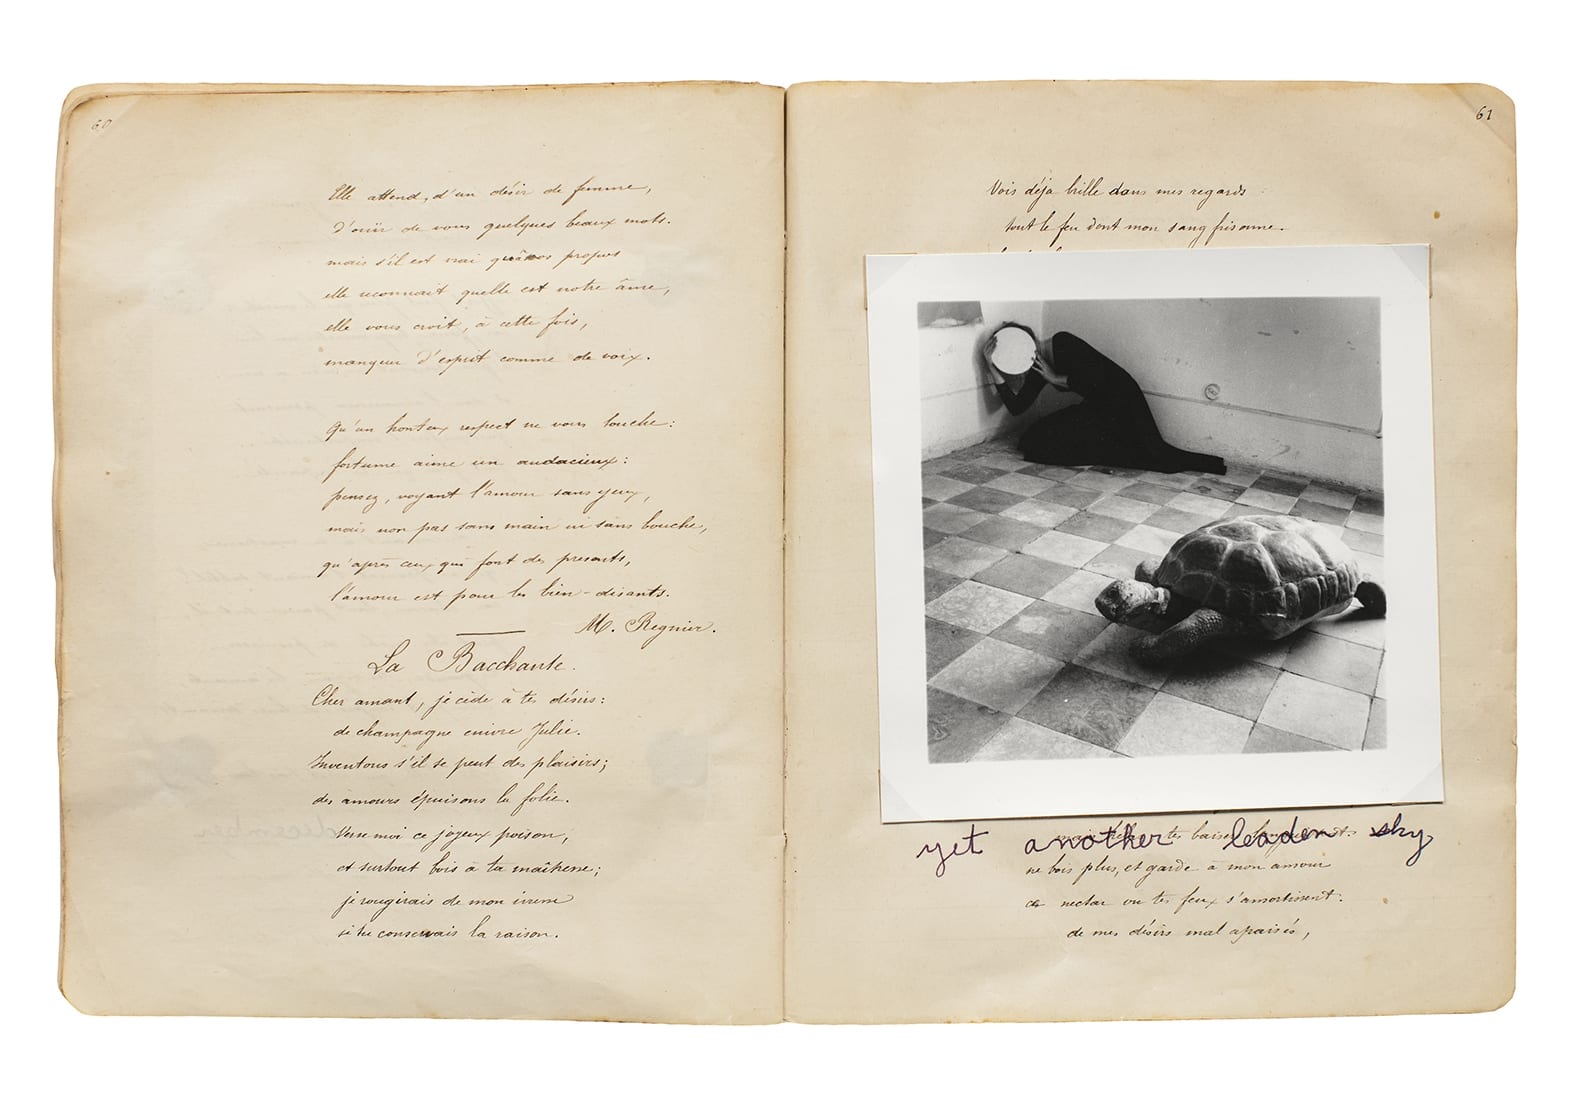 60
Elle attend, d'un désir de femme,
d'ouïr de vous quelques beaux mots.
mais s'il est vrai qu'à nos propos
elle reconnait quelle est notre âme,
elle vous croit, à cette fois,
manquer d'esprit comme de voix.
Qu'un honteux respect ne vous touche:
fortune aime un audacieux:
pensez, voyant l'amour sans yeux,
mais non pas sans main ni sans bouche,
qu'après ceux qui font des presents,
l'amour est pour les bien-disants.
M. Regnier.
La Bacchante.
Cher amant, je cède à tes désirs:
de champagne enivre Julie.
Inventons s'il se peut des plaisirs;
des amours épuisons la folie.
Verse moi ce joyeux poison,
et surtout bois à ta maîtresse;
je rougirais de mon ivresse
si tu conservais la raison.
61
Vois déja brille dans mes regards
tout le feu dont mon sang frisonne.
mais tes baisers
yet another leaden sky
ne bois plus, et garde à mon amour
ce nectar ou tes feux s'amortissent.
de mes désirs mal apaisés,
december